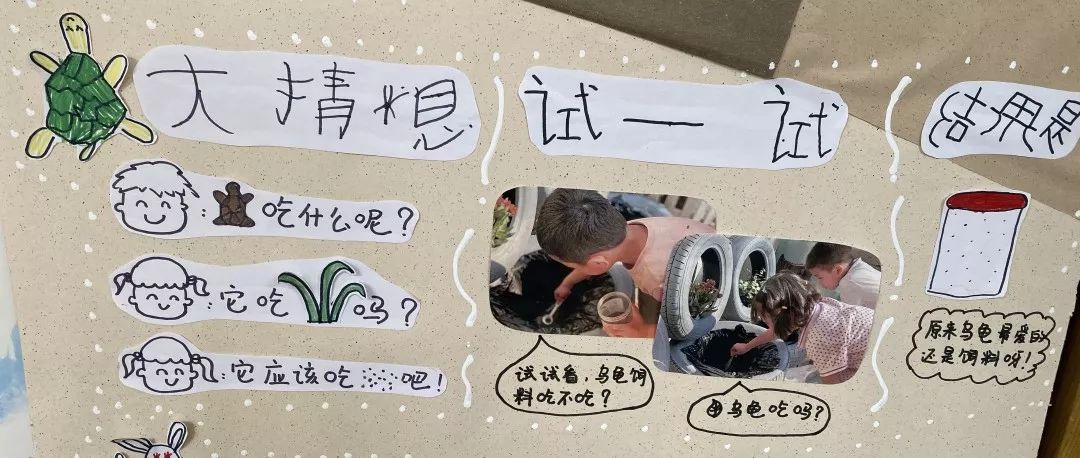 大猜想
:吃什么呢?
:它吃吗?
:它应该吃吧!
试一试
试试看,乌龟饲
料吃不吃?
乌龟吃吗?
结果是
原来乌龟最爱的
还是饲料呀!